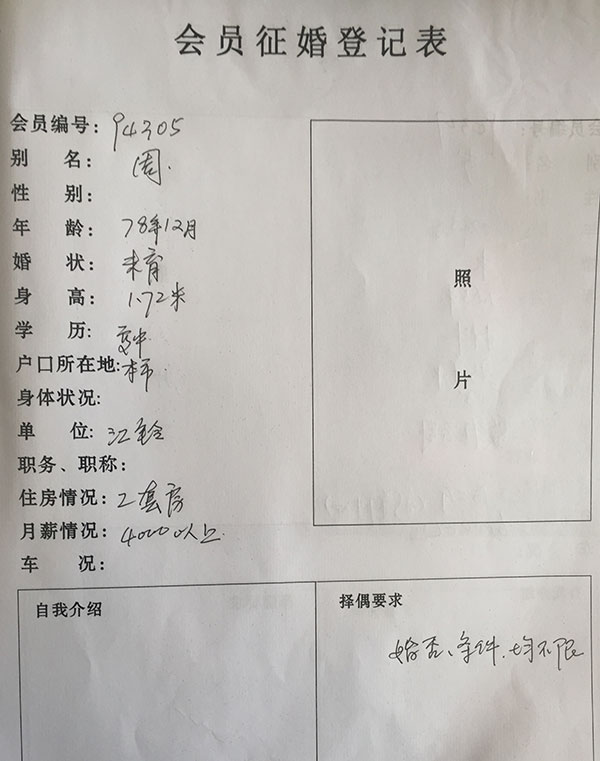 会员征婚登记表
会员编号: 94305
别 名: 周.
性 别:
年 龄: 78年12月
婚 状: 未育
身 高: 1.72米
学 历: 高中
户口所在地: 本市
身体状况:
单 位: 江铃
职务、职称:
住房情况: 2套房
月薪情况: 4000以上.
车 况:
照
片
自我介绍
择偶要求
婚否、条件.均不限